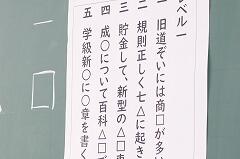 レベル一
一 旧道ぞいには商□が多い
二 規則正しく七△に起き
三 貯金して、新型の△□車
四 成〇について百科△□で
五 学級新〇に〇章を書く